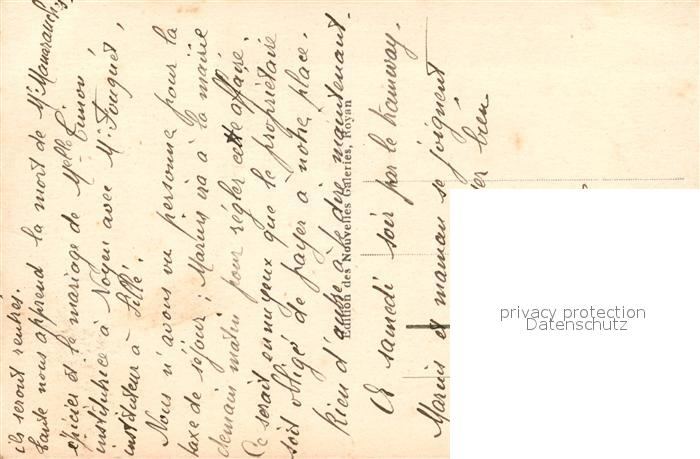 ils seront rentrés.
tante nous apprend la mort de Mr
épicier et le mariage de Melle Simon
institutrice à Noyen avec Mr Fouquet,
instituteur à Lillé.
Nous n'avons vu personne pour la
taxe de séjour ; Marius ira à la mairie
demain matin pour régler cette affaire ;
Ce serait ennuyeux que le propriétaire
soit obligé de payer à notre place.
Rien d'autre à te dire maintenant.
Edition des Nouvelles Galeries, Royan
A samedi soir par le tramway.
Marius et maman se joignent
bien
privacy protection
Datenschutz